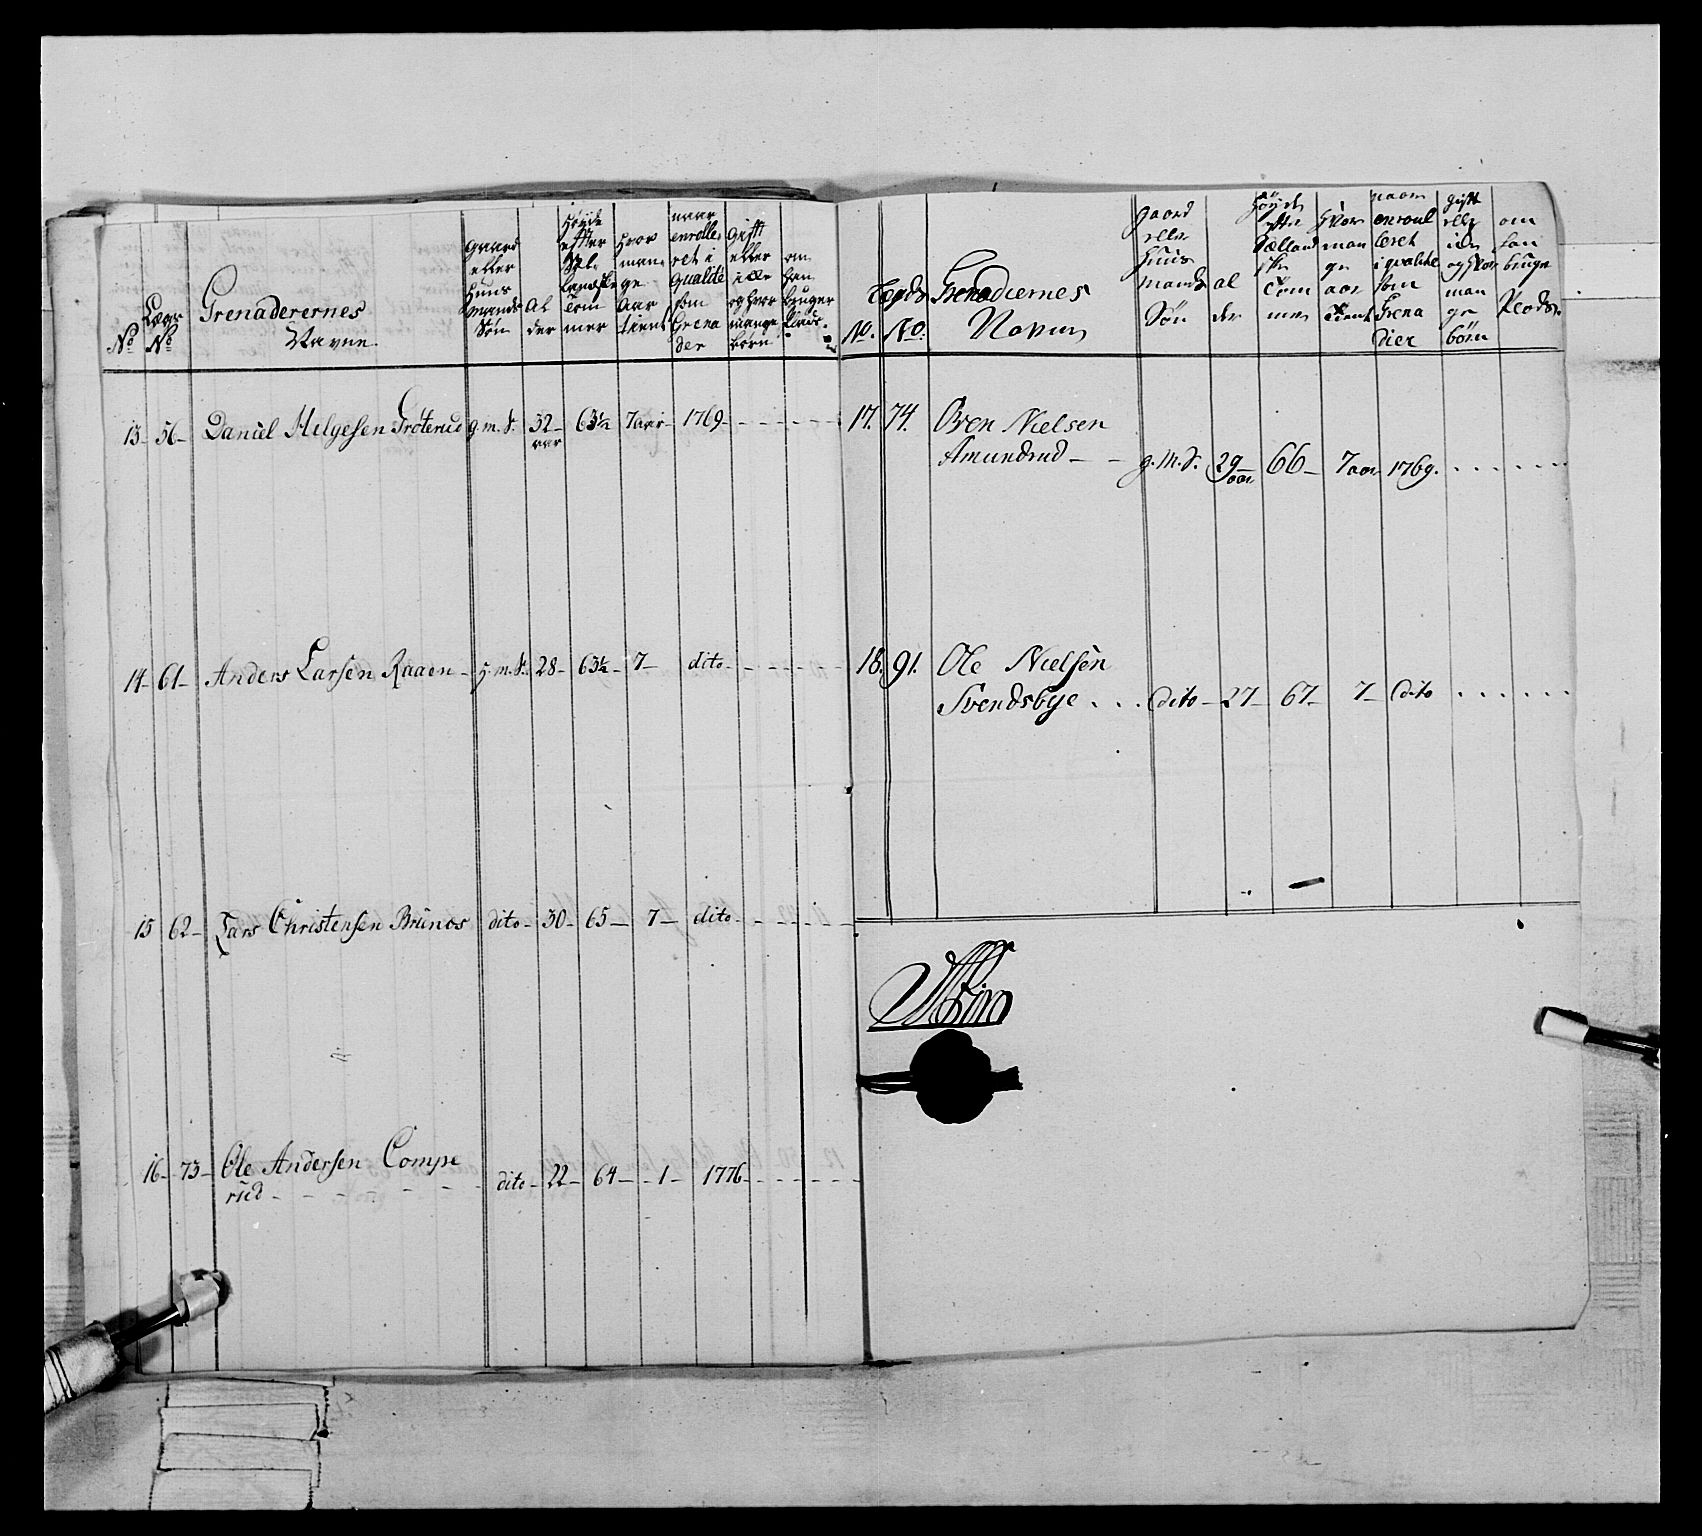 No
Lægs No
Grenaderernes
Navne
gaard
eller
Huus
mands
Søn
Al
der
Høyde
effter
Sel
landske
Tom
mer
hvor
man
ge
Aar
tient
naar
enrolle
ret i
qualité
som
Grena
der
gifft
eller
ille
og hvor
mange
børn
om
han
bruger
Plads
13 56 Daniel Helgesen Trøterud g. m. S. 32 aar 63½ 7 aar 1769
14 61 Anders Larsen Raaen g. m. S. 28 63½ 7 dito
15 62 Lars Christensen Brunes dito 30 65 7 dito
16 73 Ole Andersen Compe
rud dito 22 64 1 1776
No.
Lægds
No.
Grenadiernes
Navne
gaard
eller
Huus
mands
Søn
al
der
Høyde
efter
Sælland
ske
Tom
mer
Hvor
man
ge
aar
Tient
naar
enroul
leret
i qvalité
som
Grena
dier
gift
eller
og Hvor
man
ge
børn
om
han
bruge
Plads.
17. 74. Oven Nielsen
Amundrud g. M. S. 29 aar 66 7 aar 1769.
18. 91. Ole Nielsen
Svendsbye dito 27 67 7 dito